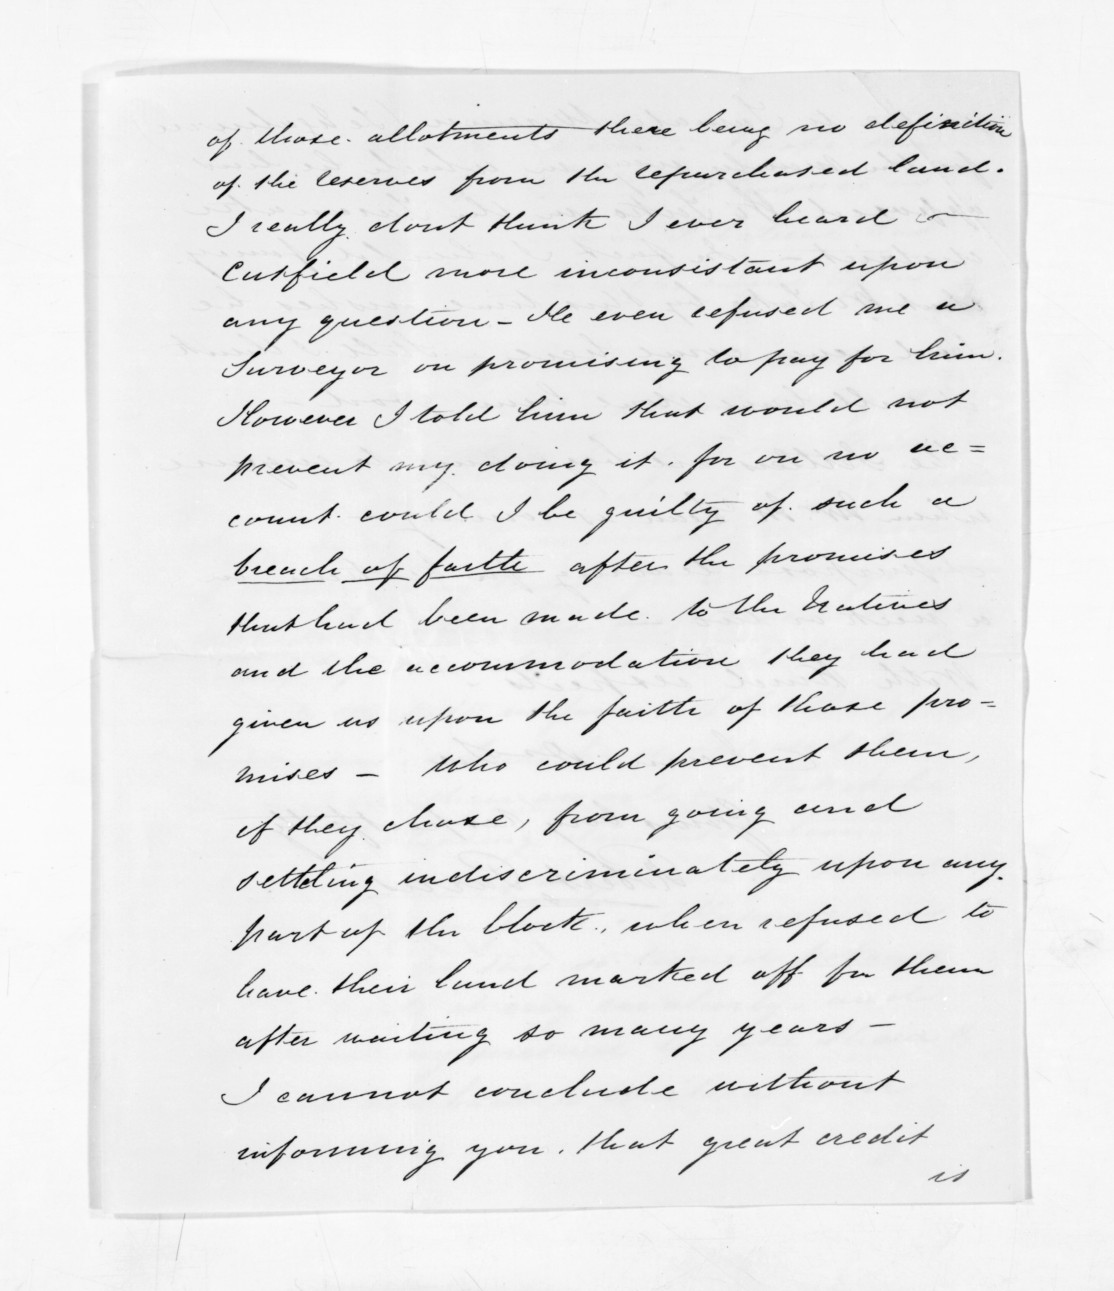 of those allotments there being no definition
of the reserves from the repurchased land.
I really dont think I ever heard
Cutfield more inconsistant upon
any question - He even refused me a
Surveyor on promising to pay for him.
However I told him that would not
prevent my doing it. for on no ac=
count could I be guilty of such a
breach of faith after the promises
that had been made to the Natives
and the accommodation they had
given us upon the faith of those pro-
mises - Who could prevent them,
if they chose, from going and
settling indiscriminately upon any
part of the block, when refused to
have their land marked off for them
after waiting so many years -
I cannot conclude without
informing you, that great credit
is